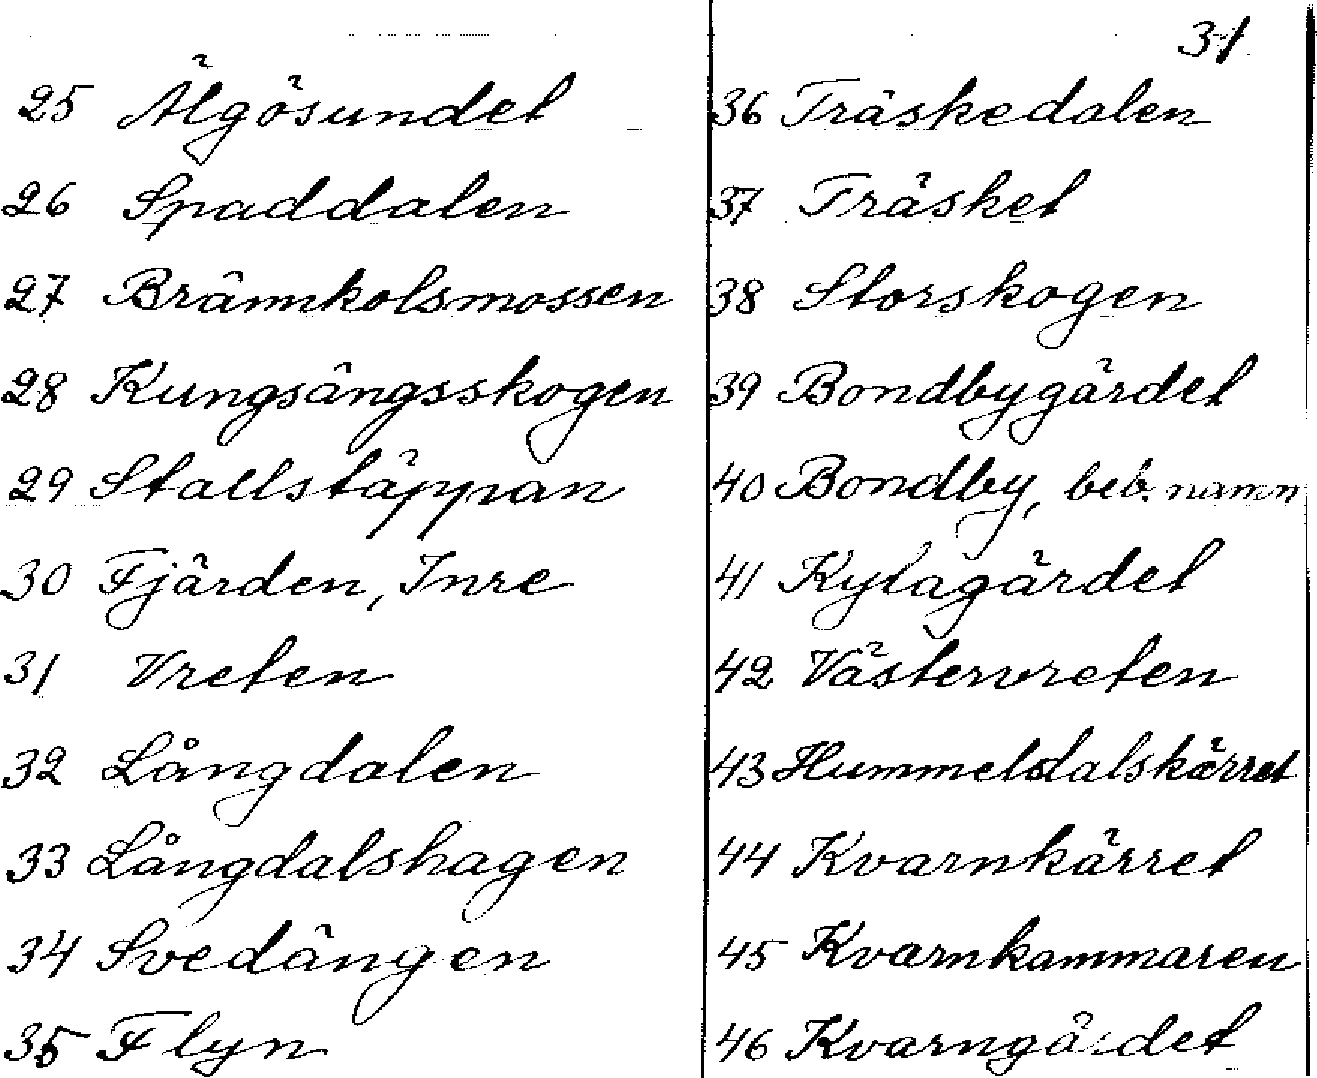 31
25 Älgösundet
26 Spaddalen
27 Brännkolsmossen
28 Kungsängsskogen
29 Stallstäppan
30 Fjärden, Inre
31 Vreten
32 Långdalen
33 Långdalshagen
34 Svedängen
35 Flyn
36 Träskedalen
37 Träsket
38 Storskogen
39 Bondbygärdet
40 Bondby, beb. namn
41 Kylagärdet
42 Västervreten
43 Hummeldalskärret
44 Kvarnkärret
45 Kvarnkammaren
46 Kvarngärdet